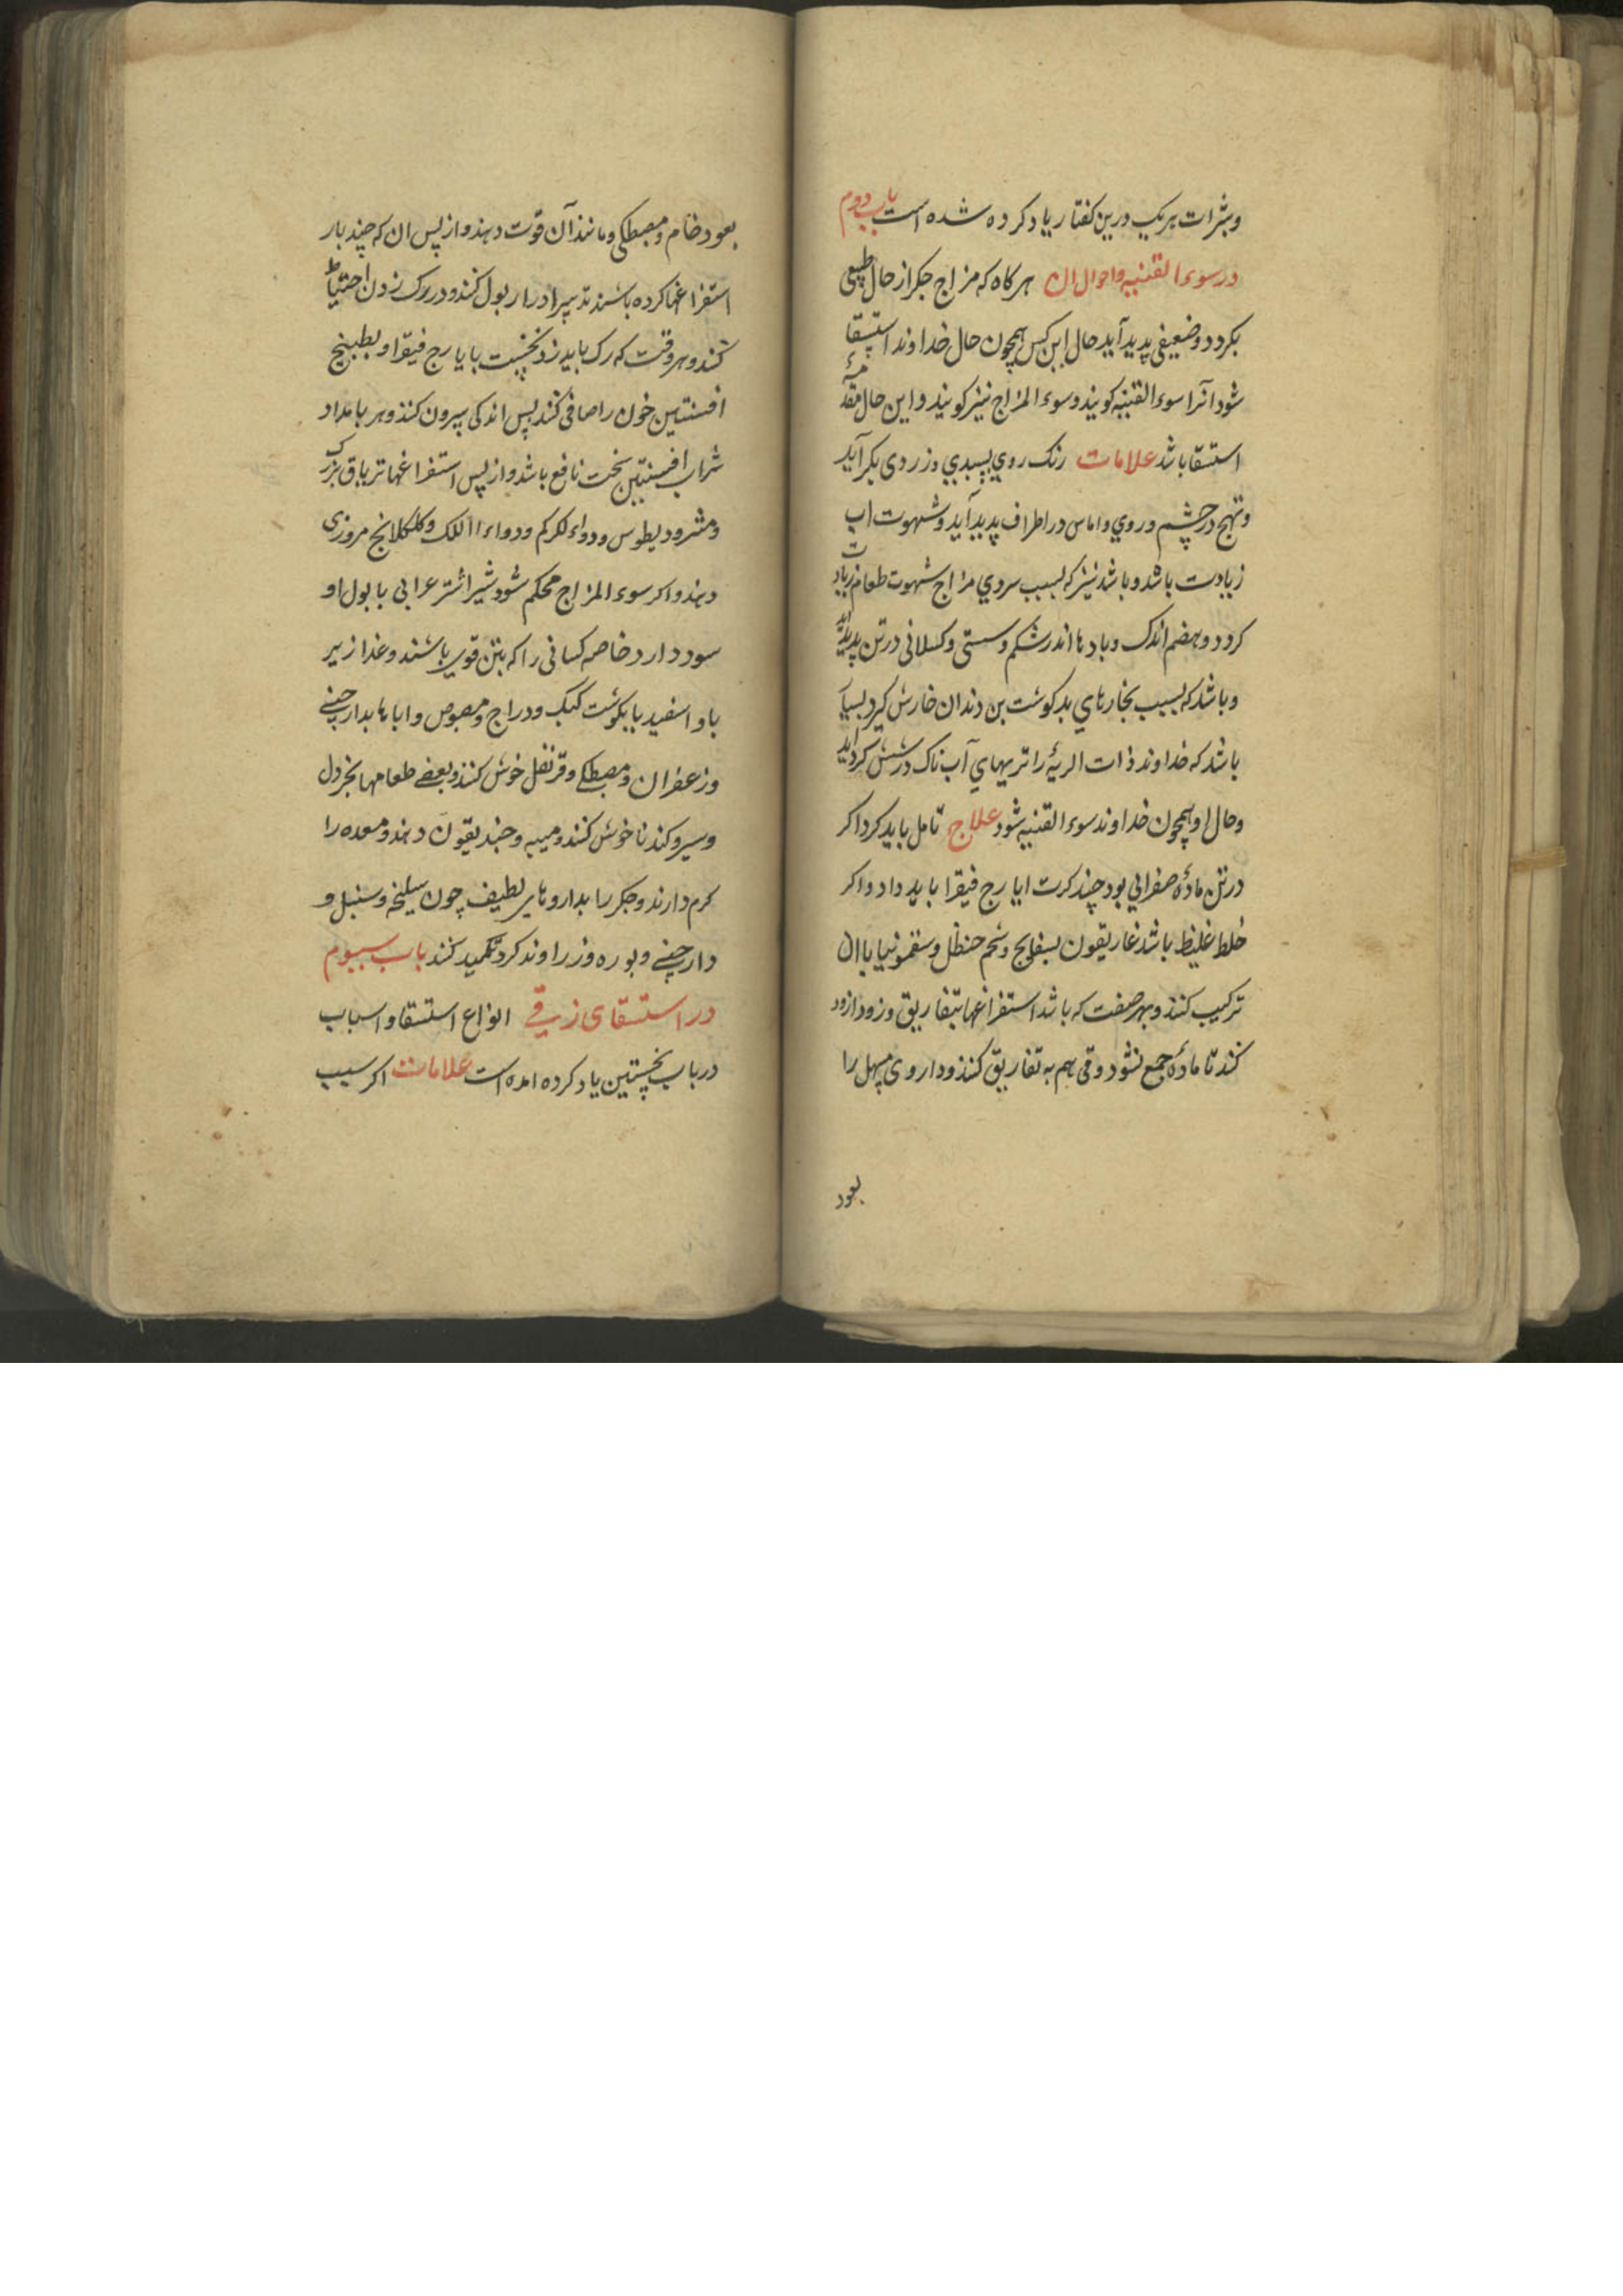 وبثرات هریک درین کفتار یاد کرده شده است باب دوم
در سوء القنیه واحوال ان هرکاه که مزاج جکر از حال طبیعی
بکردد وضعیفی پدید آید حال این کس همچون حال خداوند استسقا
شود آنرا سوء القنیه کویند وسوء المزاج نیز کویند واین حال مقدمهٔ
استسقا باشد علامات رنک روی بسپیدی وزردی بکراید
وتهیج در چشم وروی واماس در اطراف پدید آید وشهوت اب
زیادت باشد وباشد نیز که بسبب سردی مزاج شهوت طعام زیادت
کردد وهضم اندک وبادها اندر شکم وسستی وکسلانی در تن پدید اید
وباشد که بسبب بخارهای بد کوشت بن دندان خارش کیرد بسیار
باشد که خداوند ذات الریهٔ را تریهای آب ناک در شش کرد اید
وحال او همچون خداوند سوء القنیه شود علاج تامل باید کرد اکر
در تن مادهٔ صفرایی بود چند کرت ایارج فیقرا باید داد واکر
خلط غلیظ باشد غاریقون بسفایج وشحم حنظل وسقمونیا باان
ترکیب کنند وبهر صفت که باشد استفراغها بتفاریق وزود ازود
کند تا مادهٔ جمع نشود وقی هم به تفاریق کنند وداروی مسهل را
بعود
بعود خام ومصطکی ومانند آن قوت دهند واز پس ان که چند بار
استفراغها کرده باشند تدبیر ادرار بول کنند ودر رک زدن احتیاط
کنند وهر وقت که رک باید زد نخست بایارج فیقرا وبطبیخ
افسنتین خون را صافی کنند پس اندکی بیرون کنند وهر بامداد
شراب افسنتین سخت نافع باشد واز پس استفراغها تریاق بزرک
ومثرودیطوس ودواء الکرکم ودواء اللک وکلکلانج مروزی
دهند واکر سوء المزاج محکم شود شیر اشتر عرابی با بول او
سود دارد خاصه کسانی را که بتن قوی باشند وغذا زیر
باو اسفید با بکوشت کبک ودراج ومصوص واباها بدارچینی
وزعفران ومصطکی وقرنفل خوش کنند وبعضی طعامها بخردل
وسیر وکندنا خوش کنند ومیبه وجندیقون دهند ومعده را
کرم دارند وجکر را بداروهای لطیف چون سلیخه وسنبل و
دارچینی وبوره وزراوند کرد تکمید کنند باب سیوم
در استسقای زقی انواع استسقا واسباب
در باب نخستین یاد کرده امده است علامات اکر سبب